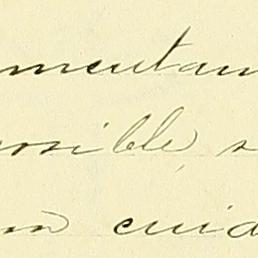 mentan
posible, s
on cuid